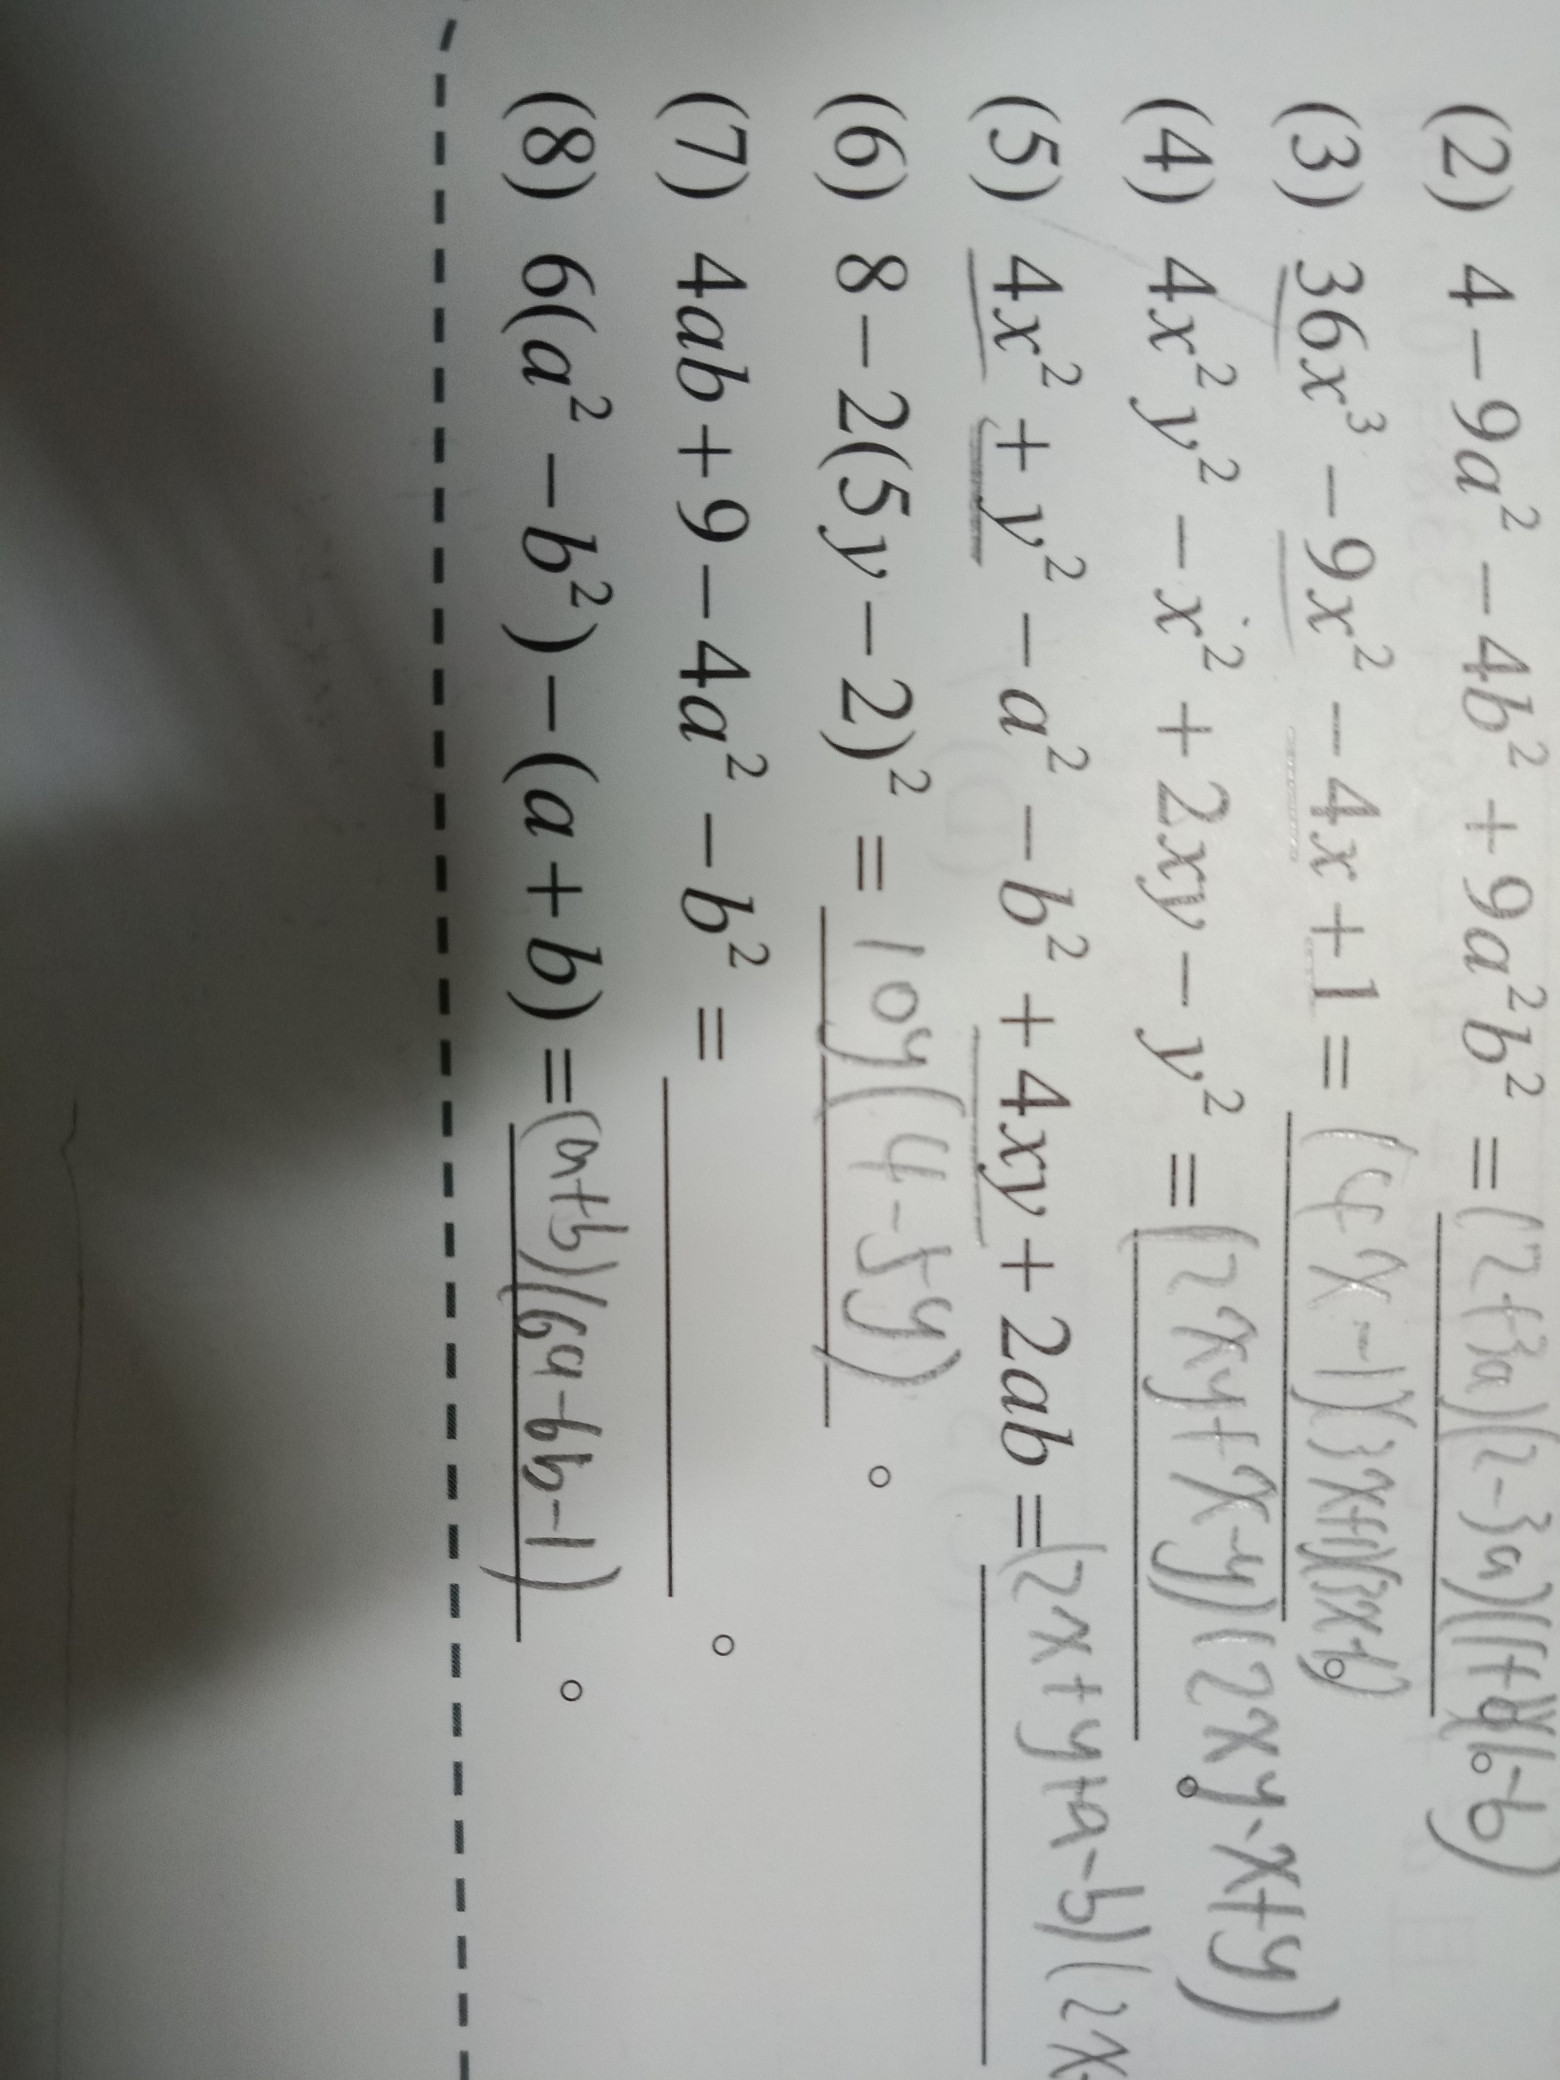 (2) 4 − 9a² − 4b² + 9a²b² = (2+3a)(2−3a)(1+b)(1−b)。
(3) 36x³ − 9x² − 4x + 1 = (4x−1)(3x+1)(3x−1)。
(4) 4x²y² − x² + 2xy − y² = (2xy+x−y)(2xy−x+y)。
(5) 4x² + y² − a² − b² + 4xy + 2ab = (2x+y+a−b)(2x
(6) 8 − 2(5y − 2)² = 10y(4−5y)。
(7) 4ab + 9 − 4a² − b² = 。
(8) 6(a² − b²) − (a + b) = (a+b)(6a−6b−1)。